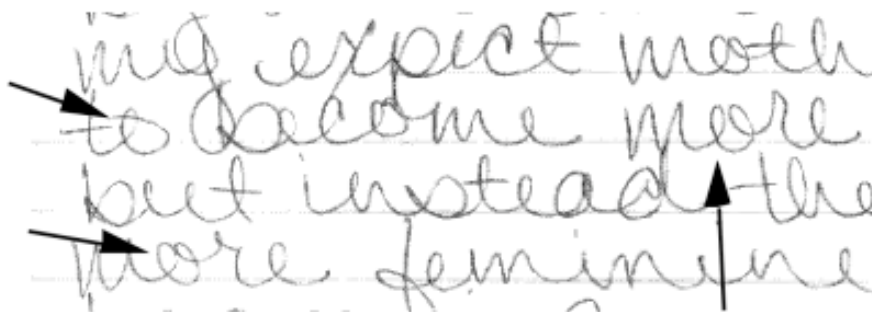 expict moth
to become more
but instead the
more feminine